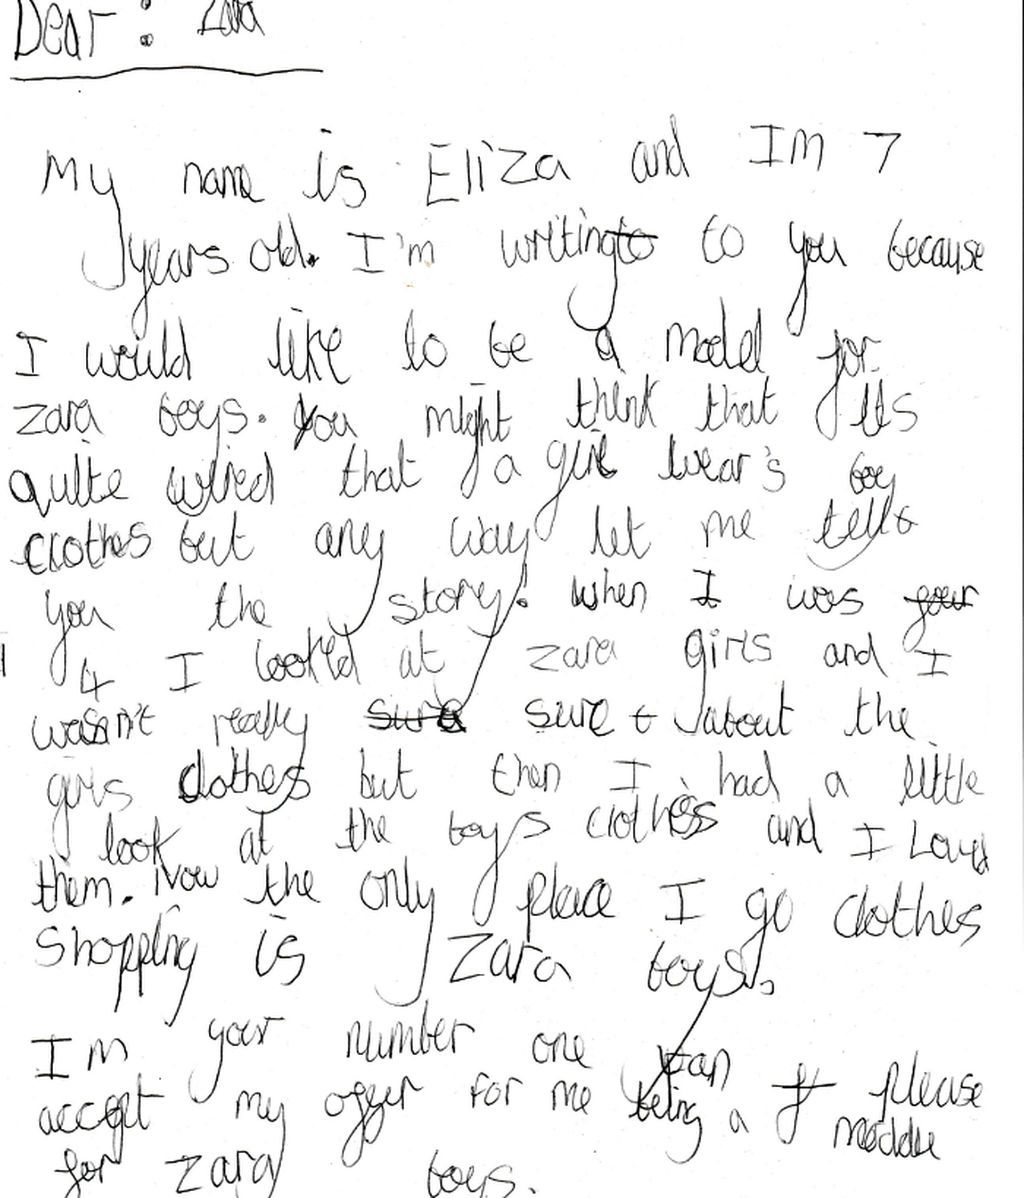 Dear : Zara
My name is Eliza and Im 7
years old. I'm writing to to you because
I would like to be a model for
zara boys. You might think that its
quite wired that a girl wear's boy
clothes but any way let me tell
you the story. when I was four
4 I looked at zara girls and I
wasn't really sure sure t about the
girls clothes but then I had a little
look at the boys clothes and I Loved
them. Now the only place I go clothes
shopping is Zara boys.
Im your number one fan f please
accept my offer for me being a moddle
for zara boys.